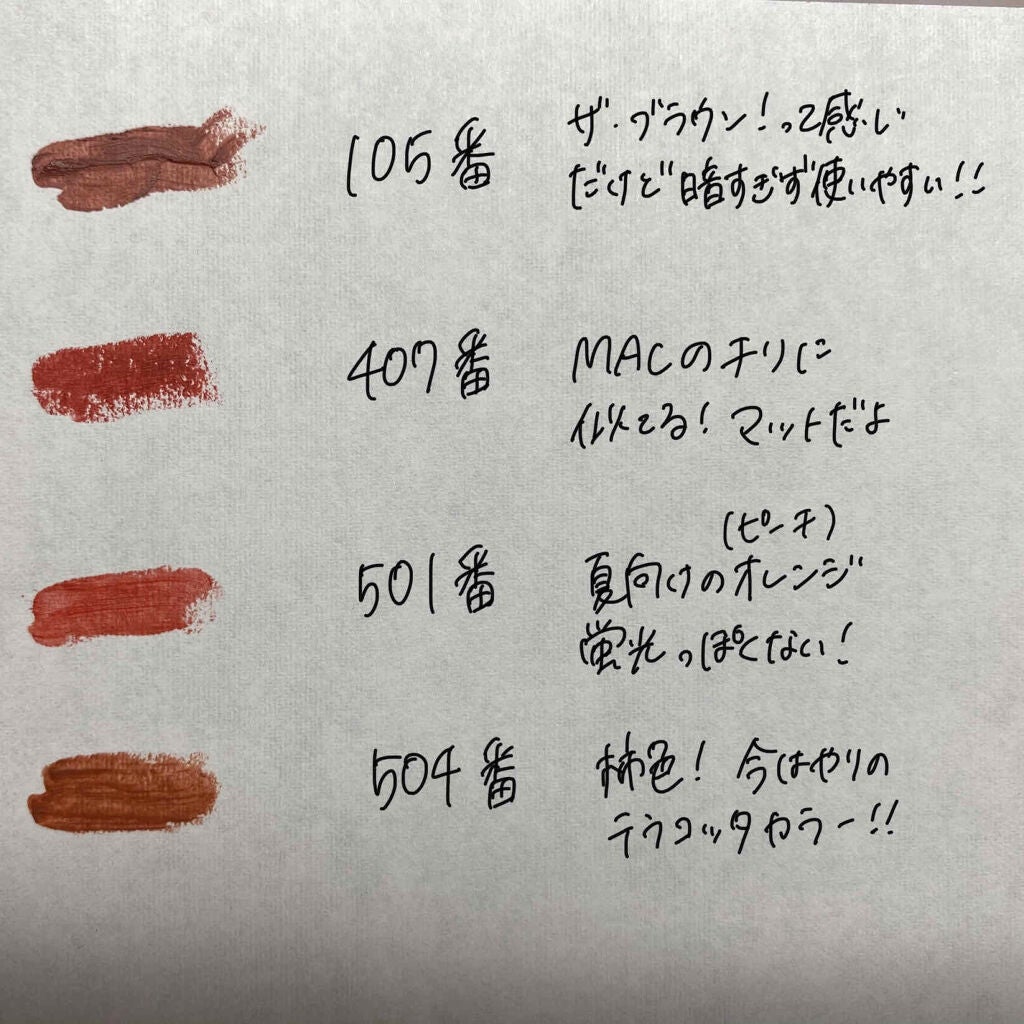 105番
ザ・ブラウン!って感じ
だけど暗すぎず使いやすい!!
407番
MACのチリに
似てる! マットだよ
501番
(ピーチ)
夏向けのオレンジ
蛍光っぽくない!
504番
柿色! 今はやりの
テラコッタカラー!!